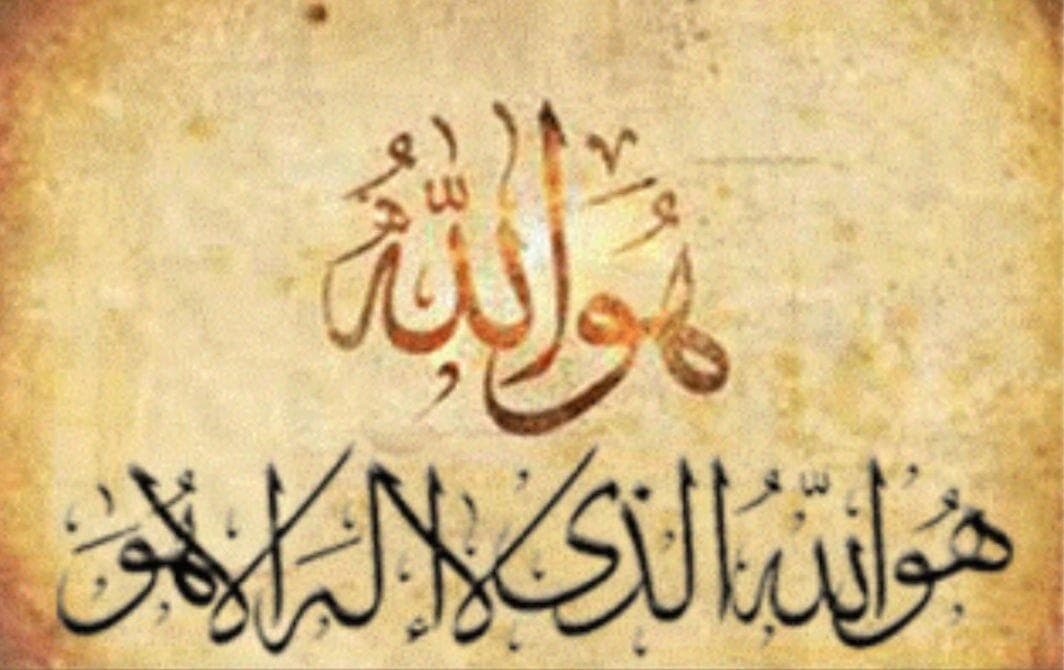 هُوَ اللّٰهُ
هُوَ اللّٰهُ الَّذی لا إلٰهَ الا هُوَ